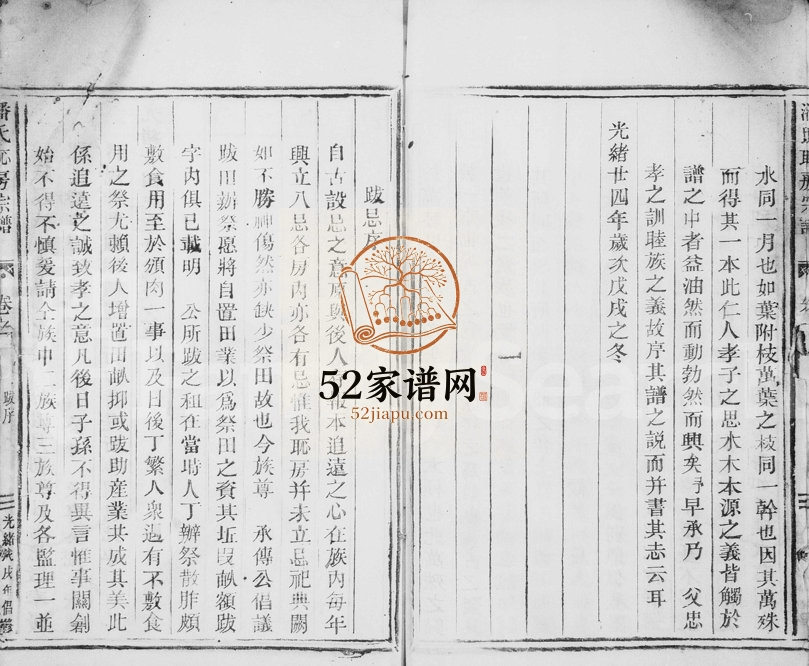 水同一月也如葉附枝萬葉之枝同一幹也因其萬殊
而得其一本此仁人孝子之思水木本源之義皆觸於
譜之中者益油然而動勃然而興矣予早承乃 父忠
孝之訓睦族之義故序其譜之說而并書其志云耳
光緒廿四年歲次戊戌之冬
跋忌序
自古設忌之意 後人 報本追遠之心在族內每年
興立八忌各房內亦各有忌惟我恥房并未立忌祀典闕
如不勝 傷然亦缺少祭田故也今族尊 承傳公倡議
跋田辦祭愿將自置田業以為祭田之資其坵段畝額跋
字內俱已載明 公所跋之租在當時人丁辦祭散胙頗
敷食用至於頒肉一事以及日後丁繁人衆遇有不敷食
用之祭尤賴後人增置田畝抑或跋助産業共成其美此
係追遠之誠致孝之意凡後日子孫不得異言惟事關創
始不得不慎爰請仝族中二族尊三族尊及各監理一並
潘氏恥房宗譜
卷之
跋序
光緒戊戌年倡修
52家谱网
52jiapu.com